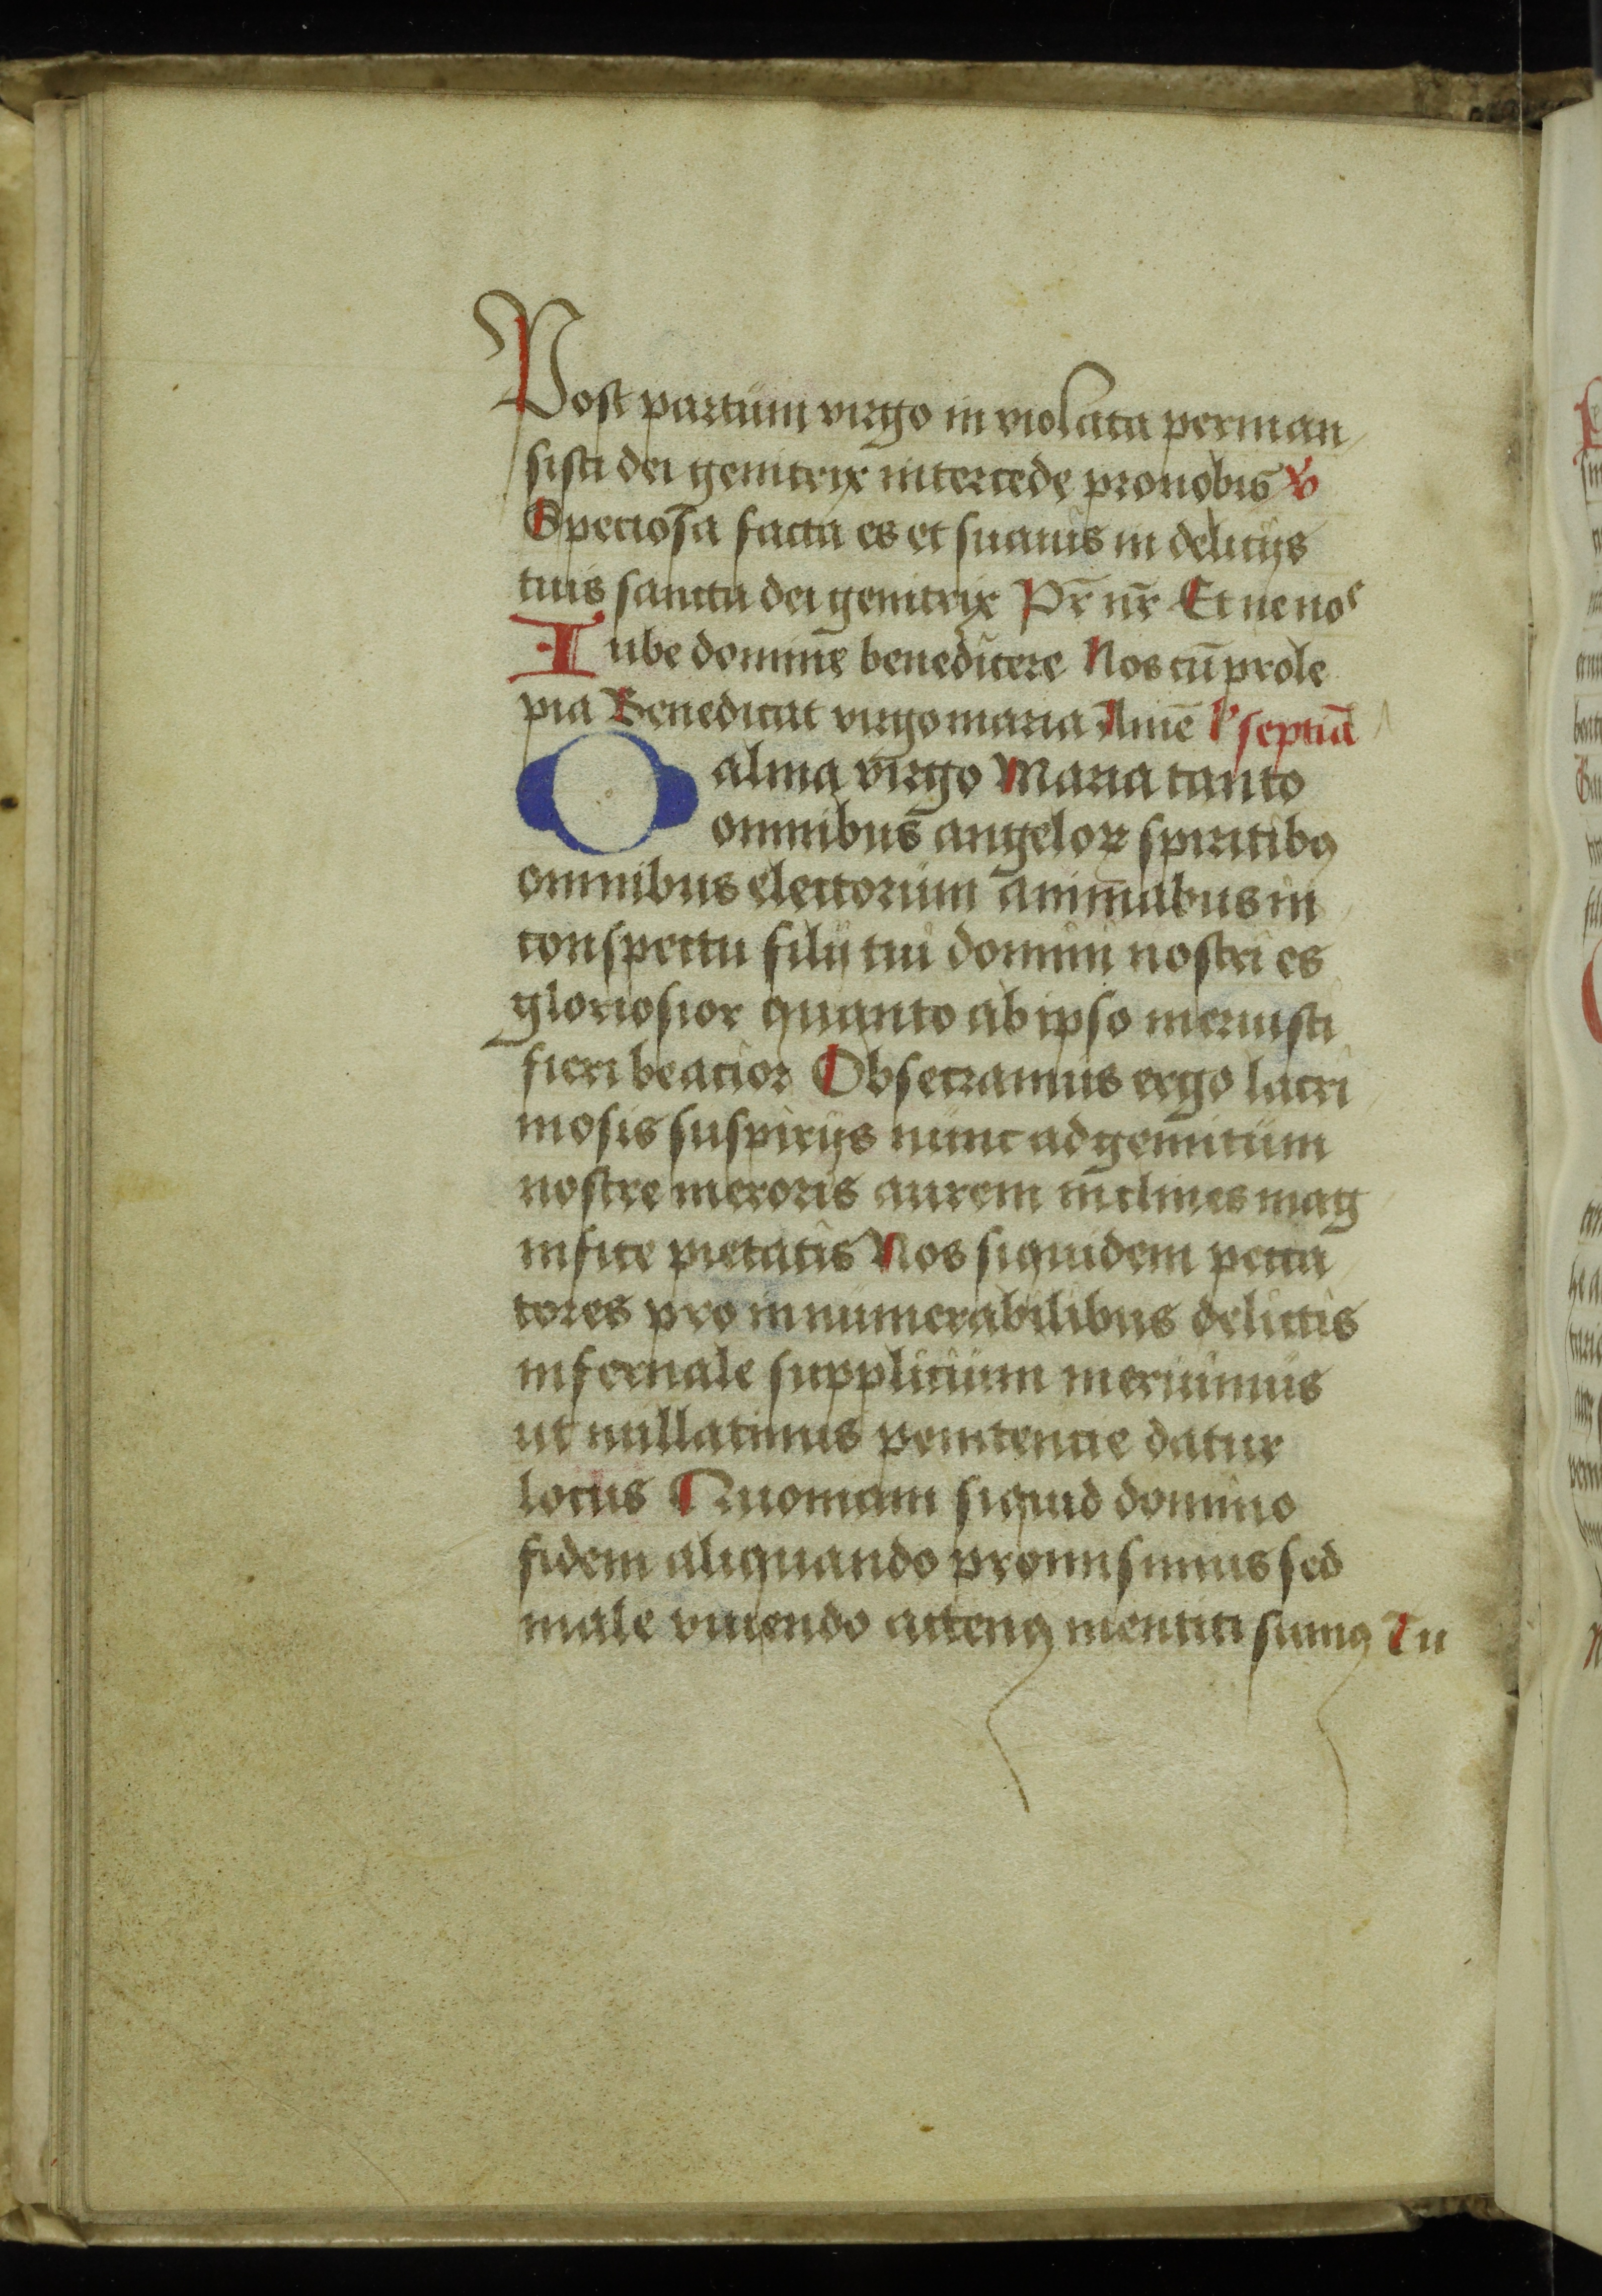 Post partum virgo in violata perman
sisti dei genitrix intercede pro nobis ℣
Speciosa facta es et suauis in delicijs
tuis sancta dei genitrix Pr̄ nr̄ Et ne nos
Iube domine benedicere Nos cū prole
pia Benedicat virgo maria Amē septīa
O alma virgo Maria tanto
omnibus angeloꝝ spiritibꝯ
omnibus electorum animabus in
conspectu filij tui domini nostri es
gloriosior quanto ab ipso meruisti
fieri beatior Obsecramus ergo lacri
mosis suspirijs nunc ad gemitum
nostre meroris aurem inclines mag
nifice pietatis Nos siquidem pecca
tores pro innumerabilibus delictis
infernale supplicium meruimus
ut nullatinus penitencie datur
locus Quoniam siquid domino
fidem aliquando promisimus sed
male viuendo actenꝯ mentiti sumꝯ Tu